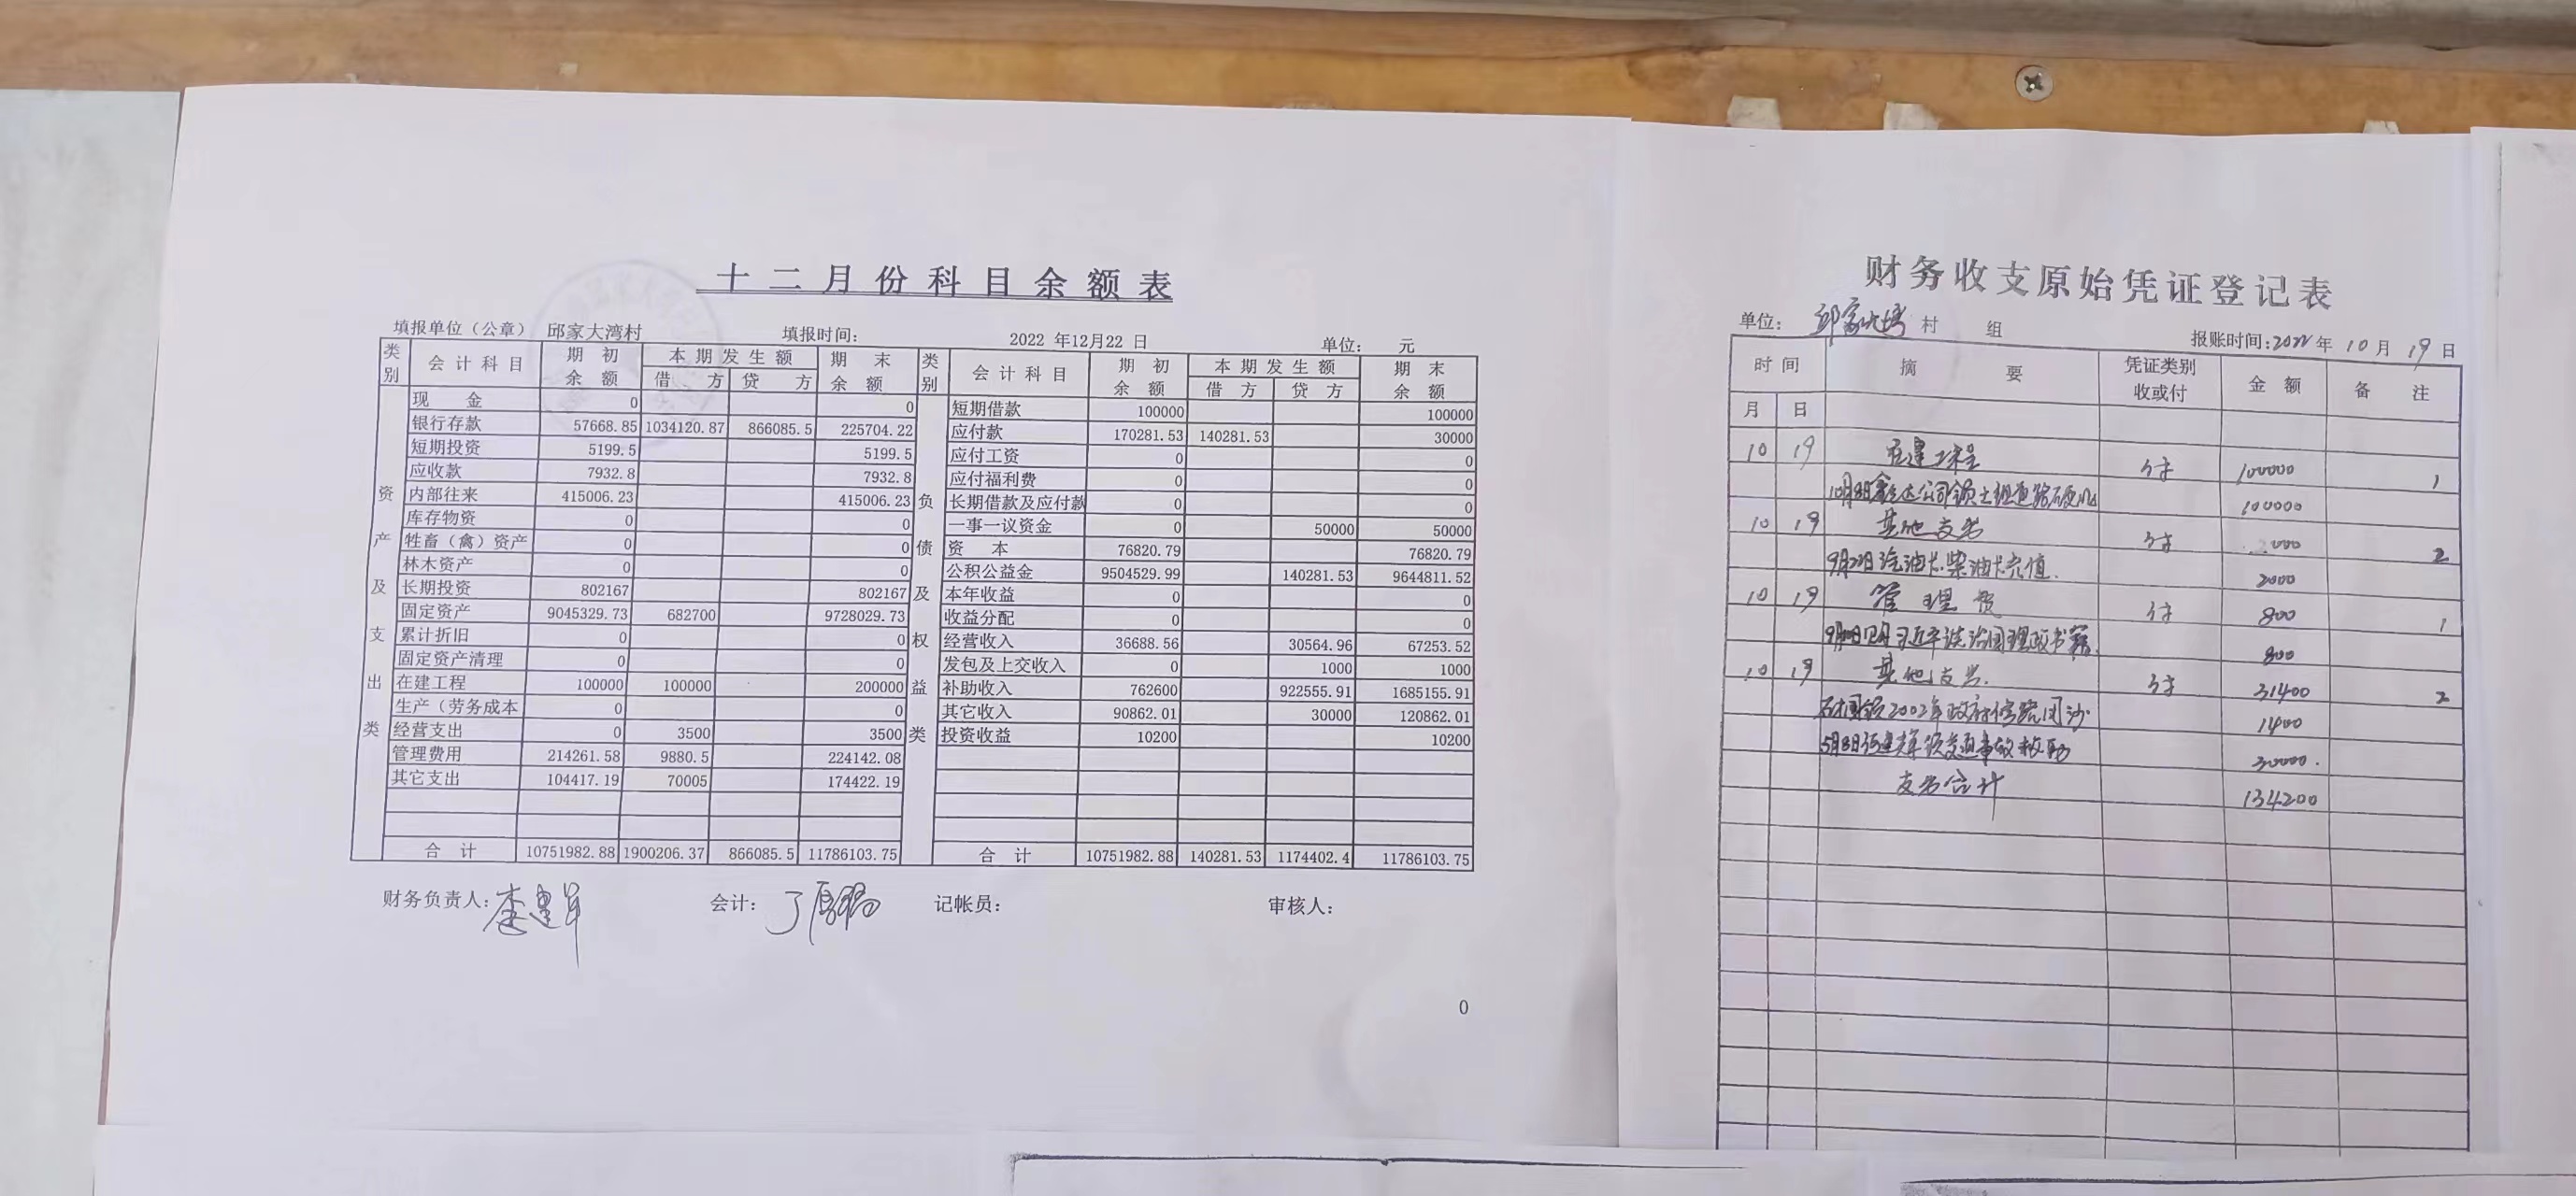 十二月份科目余额表
填报单位（公章） 邱家大湾村 填报时间： 2022 年12月22 日 单位： 元
类别 会计科目 期初余额 本期发生额 期末余额 类别 会计科目 期初余额 本期发生额 期末余额
借方 贷方 借方 贷方
资产及支出类 负债及权益类
现金 0 0 短期借款 100000 100000
银行存款 57668.85 1034120.87 866085.5 225704.22 应付款 170281.53 140281.53 30000
短期投资 5199.5 5199.5 应付工资 0 0
应收款 7932.8 7932.8 应付福利费 0 0
内部往来 415006.23 415006.23 长期借款及应付款 0 0
库存物资 0 0 一事一议资金 0 50000 50000
牲畜（禽）资产 0 0 资本 76820.79 76820.79
林木资产 0 0 公积公益金 9504529.99 140281.53 9644811.52
长期投资 802167 802167 本年收益 0 0
固定资产 9045329.73 682700 9728029.73 收益分配 0 0
累计折旧 0 0 经营收入 36688.56 30564.96 67253.52
固定资产清理 0 0 发包及上交收入 0 1000 1000
在建工程 100000 100000 200000 补助收入 762600 922555.91 1685155.91
生产（劳务成本 0 0 其它收入 90862.01 30000 120862.01
经营支出 0 3500 3500 投资收益 10200 10200
管理费用 214261.58 9880.5 224142.08
其它支出 104417.19 70005 174422.19
合计 10751982.88 1900206.37 866085.5 11786103.75 合计 10751982.88 140281.53 1174402.4 11786103.75
财务负责人： 会计： 记帐员： 审核人：
0
财务收支原始凭证登记表
单位： 邱家大塆 村 组 报账时间：2022 年 10 月 19 日
时间 摘要 凭证类别收或付 金额 备注
月 日
10 19 在建工程 付 100000 1
10月8日鑫达公司领 组道路硬化 100000
10 19 其他支出 付 2000 2
汽油卡.柴油卡充值. 2000
10 19 管理费 付 800 1
习近平谈治国理政书籍. 800
10 19 其他支出. 付 31400 2
领2002年政府 1400
领交通事故 30000.
支出合计 134200